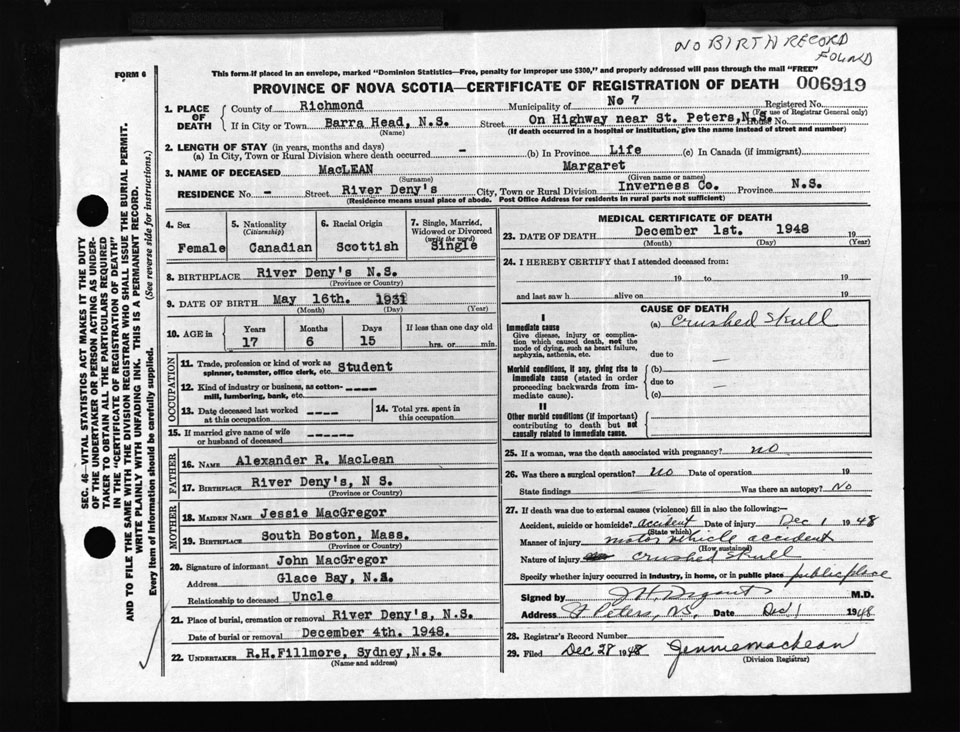 NO BIRTH RECORD
FOUND
FORM 6
This form if placed in an envelope, marked "Dominion Statistics—Free, penalty for improper use $300," and properly addressed will pass through the mail "FREE"
PROVINCE OF NOVA SCOTIA—CERTIFICATE OF REGISTRATION OF DEATH 006919
1. PLACE OF DEATH
County of Richmond Municipality of No 7 Registered No.
(For use of Registrar General only)
If in City or Town Barra Head, N.S. Street On Highway near St. Peters, N.S. House No.
(Name) (If death occurred in a hospital or institution, give the name instead of street and number)
2. LENGTH OF STAY (in years, months and days)
(a) In City, Town or Rural Division where death occurred - (b) In Province Life (c) In Canada (if immigrant)
3. NAME OF DECEASED MacLEAN Margaret
(Surname) (Given name or names)
RESIDENCE No - Street River Deny's City, Town or Rural Division Inverness Co. Province N.S.
(Residence means usual place of abode. Post Office Address for residents in rural parts not sufficient)
4. Sex
Female
5. Nationality
(Citizenship)
Canadian
6. Racial Origin
Scottish
7. Single, Married,
Widowed or Divorced
(write the word)
Single
8. BIRTHPLACE River Deny's N.S.
(Province or Country)
9. DATE OF BIRTH May 16th. 1931
(Month) (Day) (Year)
10. AGE in
Years Months Days If less than one day old
17 6 15 hrs. or min.
OCCUPATION
11. Trade, profession or kind of work as Student
spinner, teamster, office clerk, etc.
12. Kind of industry or business, as cotton- ----
mill, lumbering, bank, etc.
13. Date deceased last worked ----
at this occupation
14. Total yrs. spent in
this occupation
15. If married give name of wife
or husband of deceased -----
FATHER
16. NAME Alexander R. MacLean
17. BIRTHPLACE River Deny's, N S.
(Province or Country)
MOTHER
18. MAIDEN NAME Jessie MacGregor
19. BIRTHPLACE South Boston, Mass.
(Province or Country)
20. Signature of informant John MacGregor
Address Glace Bay, N.S.
Relationship to deceased Uncle
21. Place of burial, cremation or removal River Deny's, N.S.
Date of burial or removal December 4th. 1948.
22. UNDERTAKER R.H.Fillmore, Sydney, N.S.
(Name and address)
MEDICAL CERTIFICATE OF DEATH
23. DATE OF DEATH December 1st. 1948 19
(Month) (Day) (Year)
24. I HEREBY CERTIFY that I attended deceased from:
19 to 19
and last saw h alive on 19
CAUSE OF DEATH
I
Immediate cause (a) Crushed Skull
Give disease, injury or complica-
tion which caused death, not the
mode of dying, such as heart failure,
asphyxia, asthenia, etc. due to —
Morbid conditions, if any, giving rise to (b)
immediate cause (stated in order due to —
proceeding backwards from im-
mediate cause). (c)
II
Other morbid conditions (if important)
contributing to death but not
causally related to immediate cause.
25. If a woman, was the death associated with pregnancy? no
26. Was there a surgical operation? no Date of operation 19
State findings Was there an autopsy? No
27. If death was due to external causes (violence) fill in also the following:—
Accident, suicide or homicide? accident Date of injury Dec 1 1948
(State which)
Manner of injury motor vehicle accident
(How sustained)
Nature of injury crushed skull
Specify whether injury occurred in industry, in home, or in public place public place
Signed by M.D.
Address St Peters, N.S. Date Dec 1 1948
28. Registrar's Record Number
29. Filed Dec 28 1948 Jennie MacLean
(Division Registrar)
SEC. 46—VITAL STATISTICS ACT MAKES IT THE DUTY
OF THE UNDERTAKER OR PERSON ACTING AS UNDER-
TAKER TO OBTAIN ALL THE PARTICULARS REQUIRED
IN THE "CERTIFICATE OF REGISTRATION OF DEATH"
AND TO FILE THE SAME WITH THE DIVISION REGISTRAR WHO SHALL ISSUE THE BURIAL PERMIT.
WRITE PLAINLY WITH UNFADING INK. THIS IS A PERMANENT RECORD.
Every item of Information should be carefully supplied. (See reverse side for instructions.)